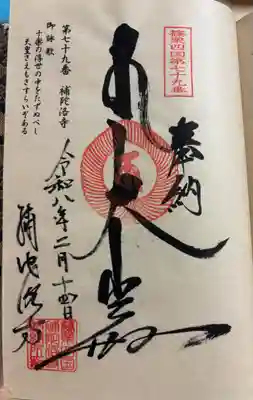 篠栗四国第七十九番
奉納
第七十九番 補陀洛寺
御詠歌
十楽の浮世の中をたずぬべし
天皇さえもさすらいぞある
令和八年二月十四日
補陀洛寺